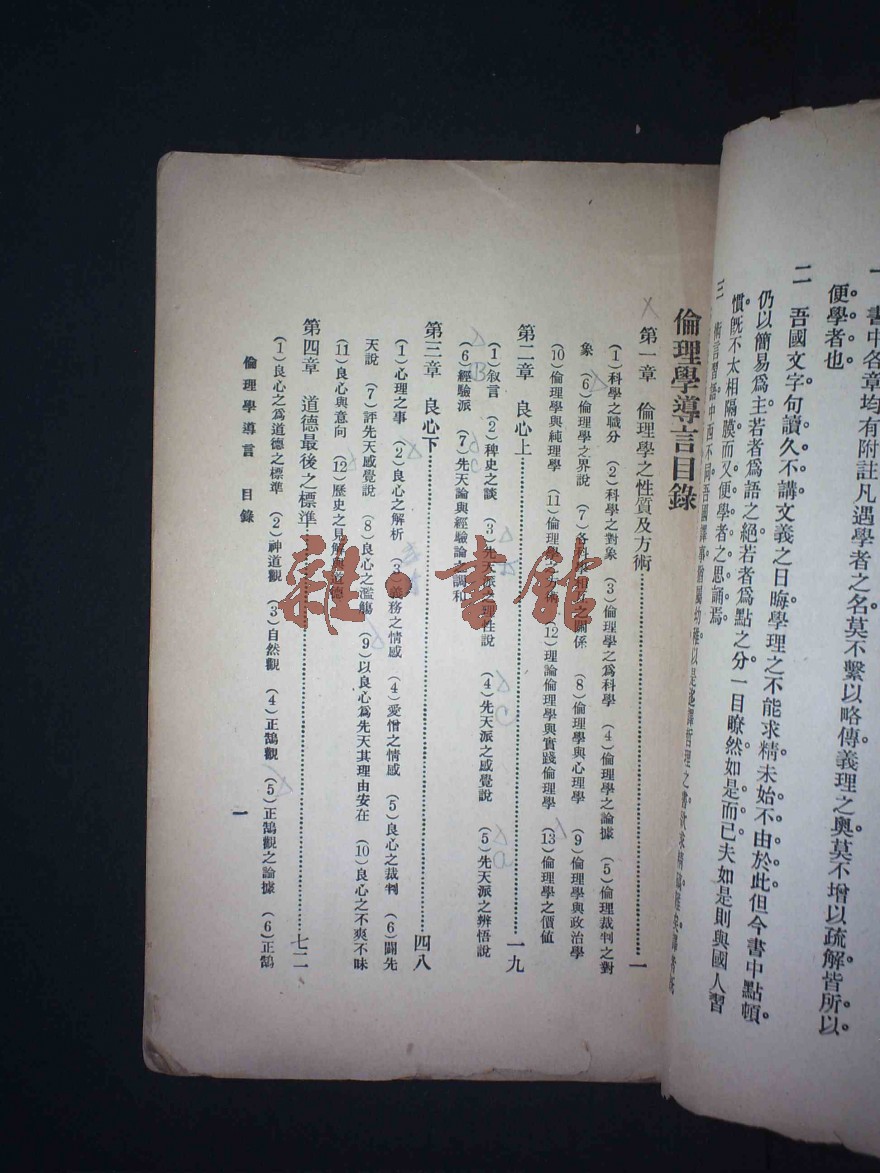 一　書中各章均有附註凡遇學者之名莫不繫以略傳義理之奥莫不增以疏解皆所以
便學者也
二　吾國文字句讀久不講文義之日晦學理之不能求精未始不由於此但今書中點頓
仍以簡易爲主若者爲語之絕若者爲點之分一目瞭然如是而已夫如是則與國人習
慣既不太相隔膜而又便學者之思誦焉
三
倫理學導言目錄
第一章　倫理學之性質及方術 一
(1)科學之職分　(2)科學之對象　(3)倫理學之爲科學　(4)倫理學之論據　(5)倫理裁判之對
象　(6)倫理學之界說　(7)各科學相互之關係　(8)倫理學與心理學　(9)倫理學與政治學
(10)倫理學與純理學　(11)倫理學之方術　(12)理論倫理學與實踐倫理學　(13)倫理學之價值
第二章　良心上 一九
(1)叙言　(2)稗史之談　(3)先天派之理性說　(4)先天派之感覺說　(5)先天派之辨悟說
(6)經驗派　(7)先天論與經驗論之調和
第三章　良心下 四八
(1)心理之事　(2)良心之解析　(3)義務之情感　(4)愛憎之情感　(5)良心之裁判　(6)闢先
天說　(7)評先天感覺說　(8)良心之濫觴　(9)以良心爲先天其理由安在　(10)良心之不爽不昧
(11)良心與意向　(12)歷史之見解與道德
第四章　道德最後之標準 七二
(1)良心之爲道德之標準　(2)神道觀　(3)自然觀　(4)正鵠觀　(5)正鵠觀之論據　(6)正鵠
倫理學導言　目錄
一
雜·書館